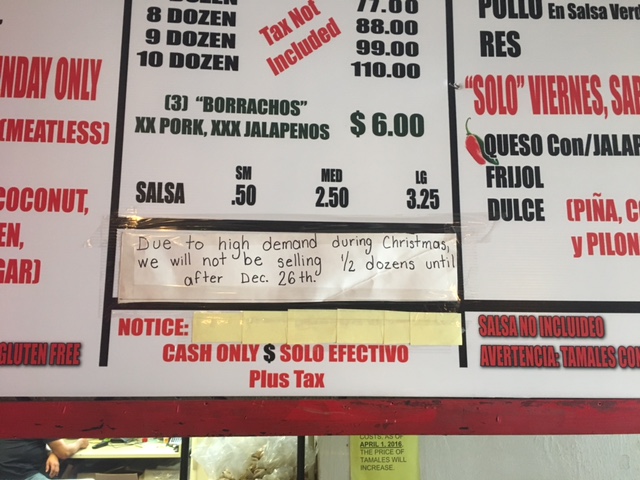 77.00
8 DOZEN 88.00
9 DOZEN 99.00
10 DOZEN 110.00
Tax Not
Included
(3) "BORRACHOS"
XX PORK, XXX JALAPENOS $ 6.00
SM MED LG
SALSA .50 2.50 3.25
Due to high demand during Christmas,
we will not be selling 1/2 dozens until
after Dec. 26th.
NOTICE:
CASH ONLY $ SOLO EFECTIVO
Plus Tax
ONLY
(MEATLESS)
GLUTEN FREE
POLLO En Salsa
RES
"SOLO" VIERNES,
QUESO Con/
FRIJOL
DULCE (PIÑA,
y
SALSA NO INCLUIDEO
AVERTENCIA: TAMALES
COSTS. AS OF
APRIL 1, 2016,
THE PRICE OF
TAMALES WILL
INCREASE.